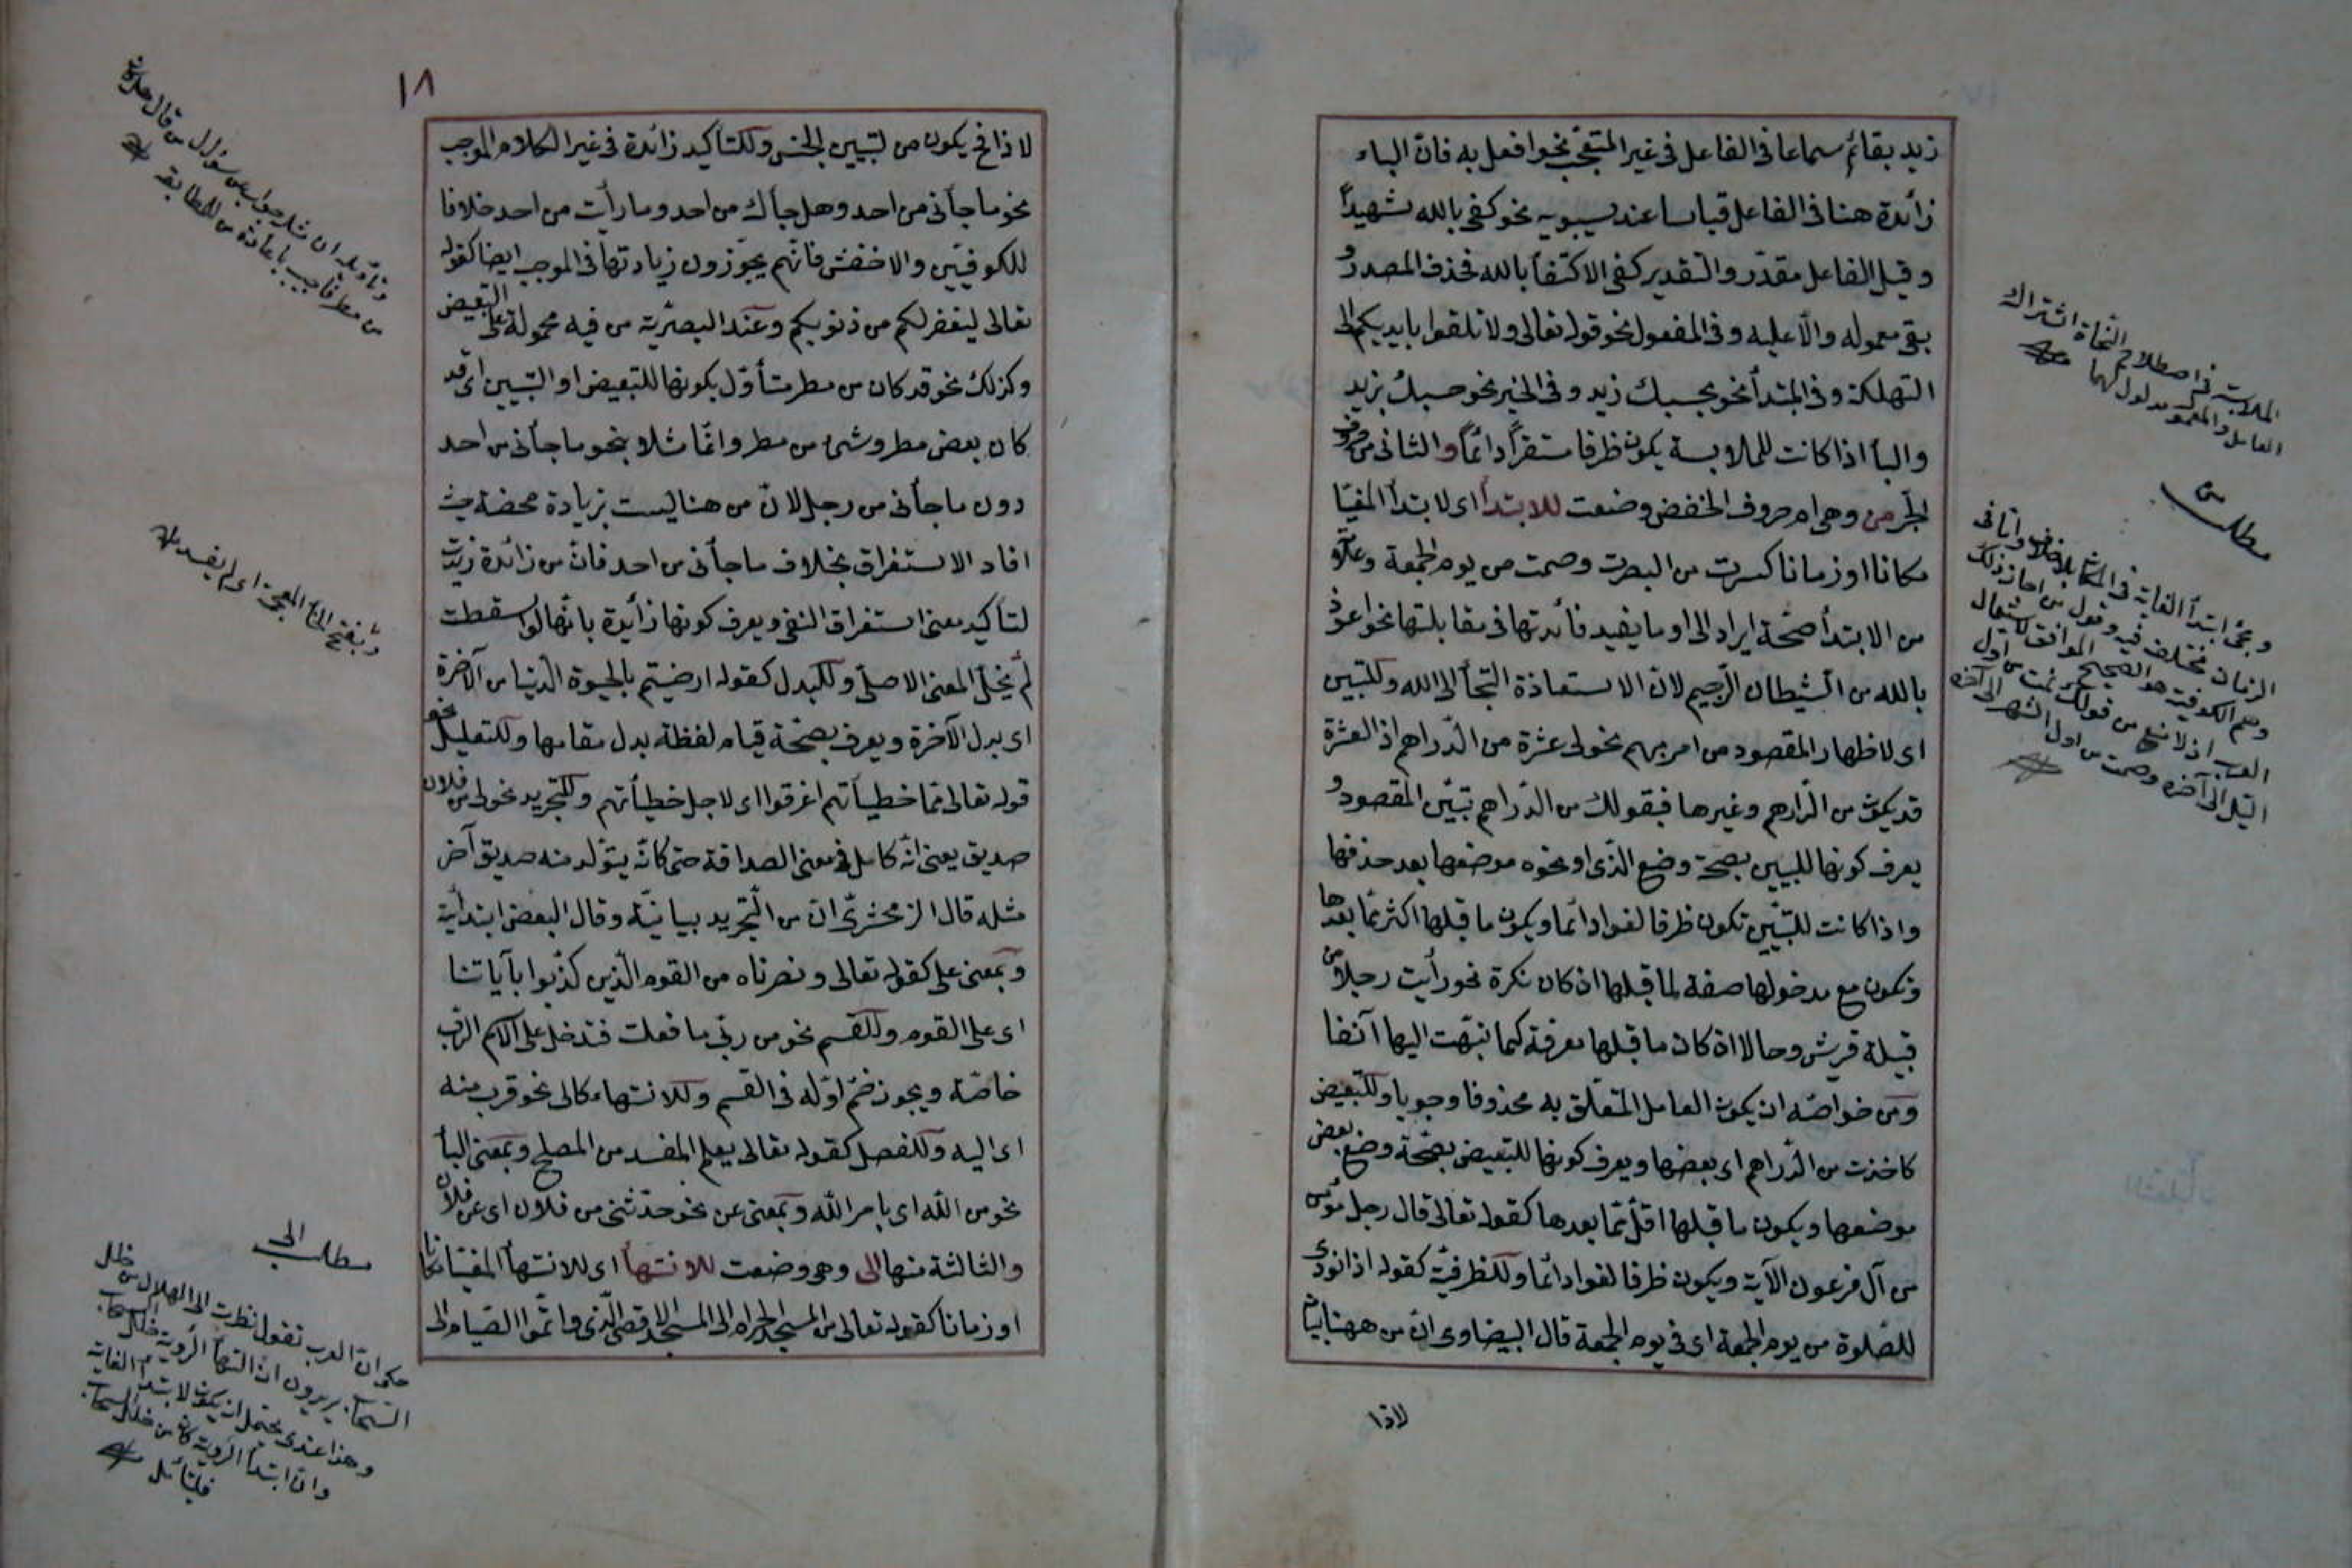 زيد بقائم سماعا فى الفاعل فى غير المتعجّب نحو افعل به فان الباء
زائدة هنا فى الفاعل قياسا عند سيبويه نحو كفى بالله شهيداً
وقيل الفاعل مقدّر والتقدير كفى الاكتفأ بالله فحذف المصدر و
بقى معموله دالّا عليه وفى المفعول نحو قوله تعالى ولا تلقوا بايديكم الى
التهلكة وفى المبتدأ نحو بحسبك زيد وفى الخبر نحو حسبك بزيد
والبأ اذا كانت للملابسة يكون ظرفا مستقراً دائماً والثانى من حروف
الجرّ من وهى ام حروف الخفض وضعت للابتدأ اى لابتدأ المغيّا
مكانا او زمانا كسرت من البصرت وصمت من يوم الجمعة وعلامة
من الابتدأ صحّة ايراد الى او ما يفيد فائدتها فى مقابلتها نحو اعوذ
بالله من الشيطان الرّجيم لان الاستعاذة التجأ الى الله وللتبيين
اى لاظهار المقصود من امر مبهم نحو لى عشرة من الدّراهم اذ العشرة
قد يكون من الدّراهم وغيرها فبقولك من الدّراهم تبيّن المقصود و
يعرف كونها للبيين بصحّة وضع الّذى او نحوه موضعها بعد حذفها
واذا كانت للتبيين تكون ظرفا لغوا دائما ويكون ما قبلها اكثر ممّا بعدها
وتكون مع مدخولها صفة لما قبلها ان كان نكرة نحو رأيت رجلا من
قبيلة قريش وحالا ان كان ما قبلها معرفة كما نبّهت اليها آنفا
ومن خواصّه ان يكون العامل المتعلّق به محذوفا وجوبا وللتّبعيض
كاخذت من الدّراهم اى بعضها ويعرف كونها للتبعيض بصحّة وضع بعض
موضعها ويكون ما قبلها اقلّ ممّا بعدها كقوله تعالى قال رجل مؤمن
من آل فرعون الآية ويكون ظرفا لغوا دائما وللظرفيّة كقوله اذا نودى
للصّلوة من يوم الجمعة اى فى يوم الجمعة قال البيضاوى ان من ههنا بيانيّة
لاذا
الملابسة فى اصطلاح النّحاة اشتراك
العامل والمعمول مدلولهما
مطلب من
ومجئ ابتدأ الغاية فى المكان بلا خلاف وامّا فى
الزمان مختلف فيه وقول من اجاز ذلك
وهم الكوفية هو الصحيح الموافق لاستعمال
العرب اذ لا مانع من قولك نمت من اول
اللّيل الى آخره وصمت من اول الشهر الى آخره
١٨
لاذا فح يكون من لتبيين الجنس وللتأكيد زائدة فى غير الكلام الموجب
نحو ما جأنى من احد وهل جأك من احد وما رأيت من احد خلافا
للكوفيّين والاخفش فانّهم يجوّزون زيادتها فى الموجب ايضا كقوله
تعالى ليغفر لكم من ذنوبكم وعند البصريّة من فيه محمولة على التبعيض
وكذلك نحو قد كان من مطر متأوّل بكونها للتبعيض او التبيين اى قد
كان بعض مطر وشئ من مطر وانّما مثلا بنحو ما جأنى من احد
دون ما جأنى من رجل لانّ من هنا ليست بزيادة محضة حيث
افاد الاستغراق بخلاف ما جأنى من احد فانّ من زائدة زيدت
لتأكيد معنى استغراق النفى ويعرف كونها زائدة بانّها لو اسقطت
لم يخلّ المعنى الاصلىّ وللبدل كقوله ارضيتم بالحيوة الدّنيا من الآخرة
اى بدل الآخرة ويعرف بصحّة قيام لفظة بدل مقامها وللتعليل نحو
قوله تعالى ممّا خطيأتهم اغرقوا اى لاجل خطيأتهم وللتجريد نحو لى من فلان
صديق يعنى انّه كامل فى معنى الصداقة حتى كانّه يتولّد منه صديق آخر
مثله قال الزمخشرىّ ان من التّجريد بيانيّة وقال البعض ابتدائية
وبمعنى على كقوله تعالى ونصرناه من القوم الّذين كذّبوا بآياتنا
اى على القوم وللقسم نحو من ربّى ما فعلت فتدخل على الاسم الرّب
خاصّة ويجوز ضمّ اوّله فى القسم وللانتهاء كالى نحو قرب منه
اى اليه وللفصل كقوله تعالى يعلم المفسد من المصلح وبمعنى البأ
نحو من الله اى بامر الله وبمعنى عن نحو حدّثنى من فلان اى عن فلان
والثالثة منها الى وهى وضعت للانتهأ اى للانتهأ المغيّا مكانا
او زمانا كقوله تعالى من المسجد الحرام الى المسجد الاقصى الّذى واتمّوا الصّيام الى
وتأويله ان مثله جواب عن سؤال من قال هل كان
من مطر فاجيب باعادة من للمطابقة
وبفتح الخأ المعجمة اى لم يفسد
مطلب الى
حكى انّ العرب تقول نظرت الى الهلال من خلل
السّحاب يريدون ان انتهأ الرّوية خلل السحاب
وهذا عندى يحتمل ان يكون لابتدأ الغاية
وان ابتدأ الرّوية كان من خلل السحاب
فليتأمل